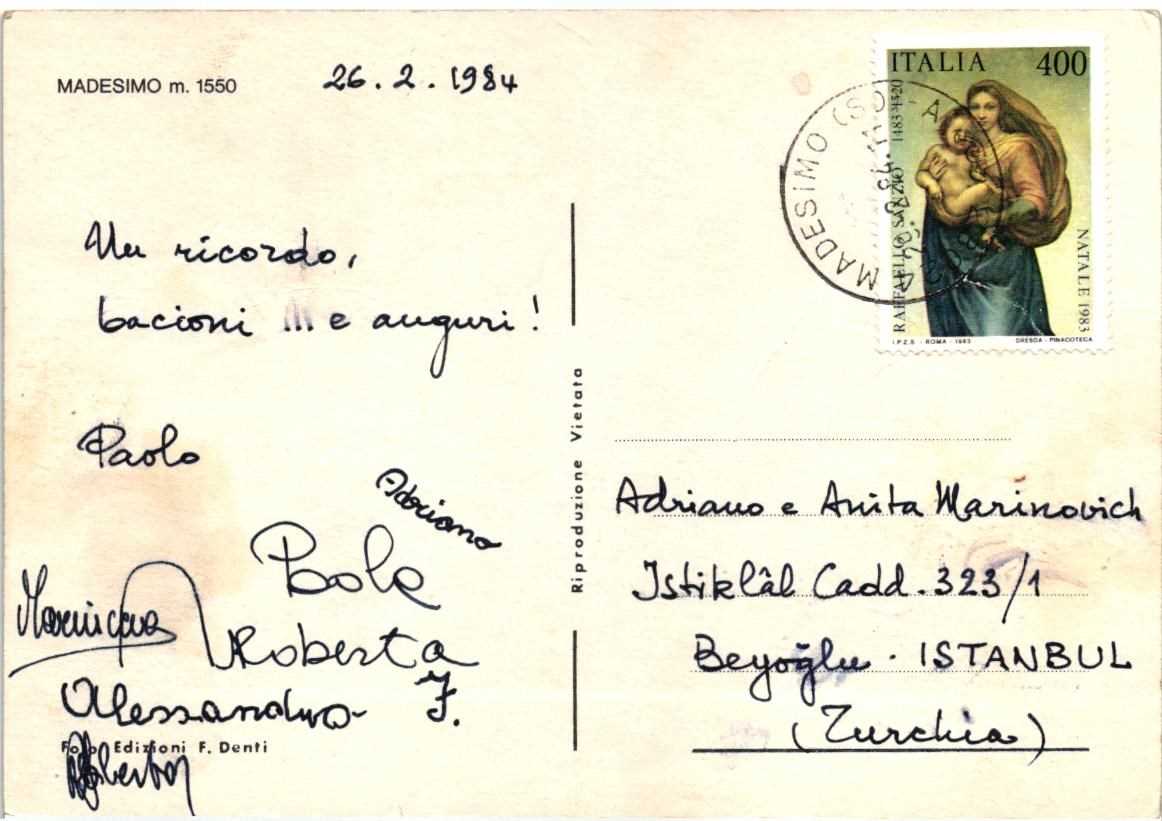 MADESIMO m. 1550
26.2.1984
Un ricordo,
bacioni !!! e auguri!
Paolo
Adriano
Paola
Roberta
Alessandro F.
Foto Edizioni F. Denti
Roberta
Riproduzione Vietata
ITALIA 400
RAFFAELLO SANZIO 1483-1520
NATALE 1983
I.P.Z.S. - ROMA - 1983
DRESDA - PINACOTECA
MADESIMO (SO)
Adriano e Anita Marinovich
Istiklâl Cadd. 323/1
Beyoğlu · ISTANBUL
(Turchia)